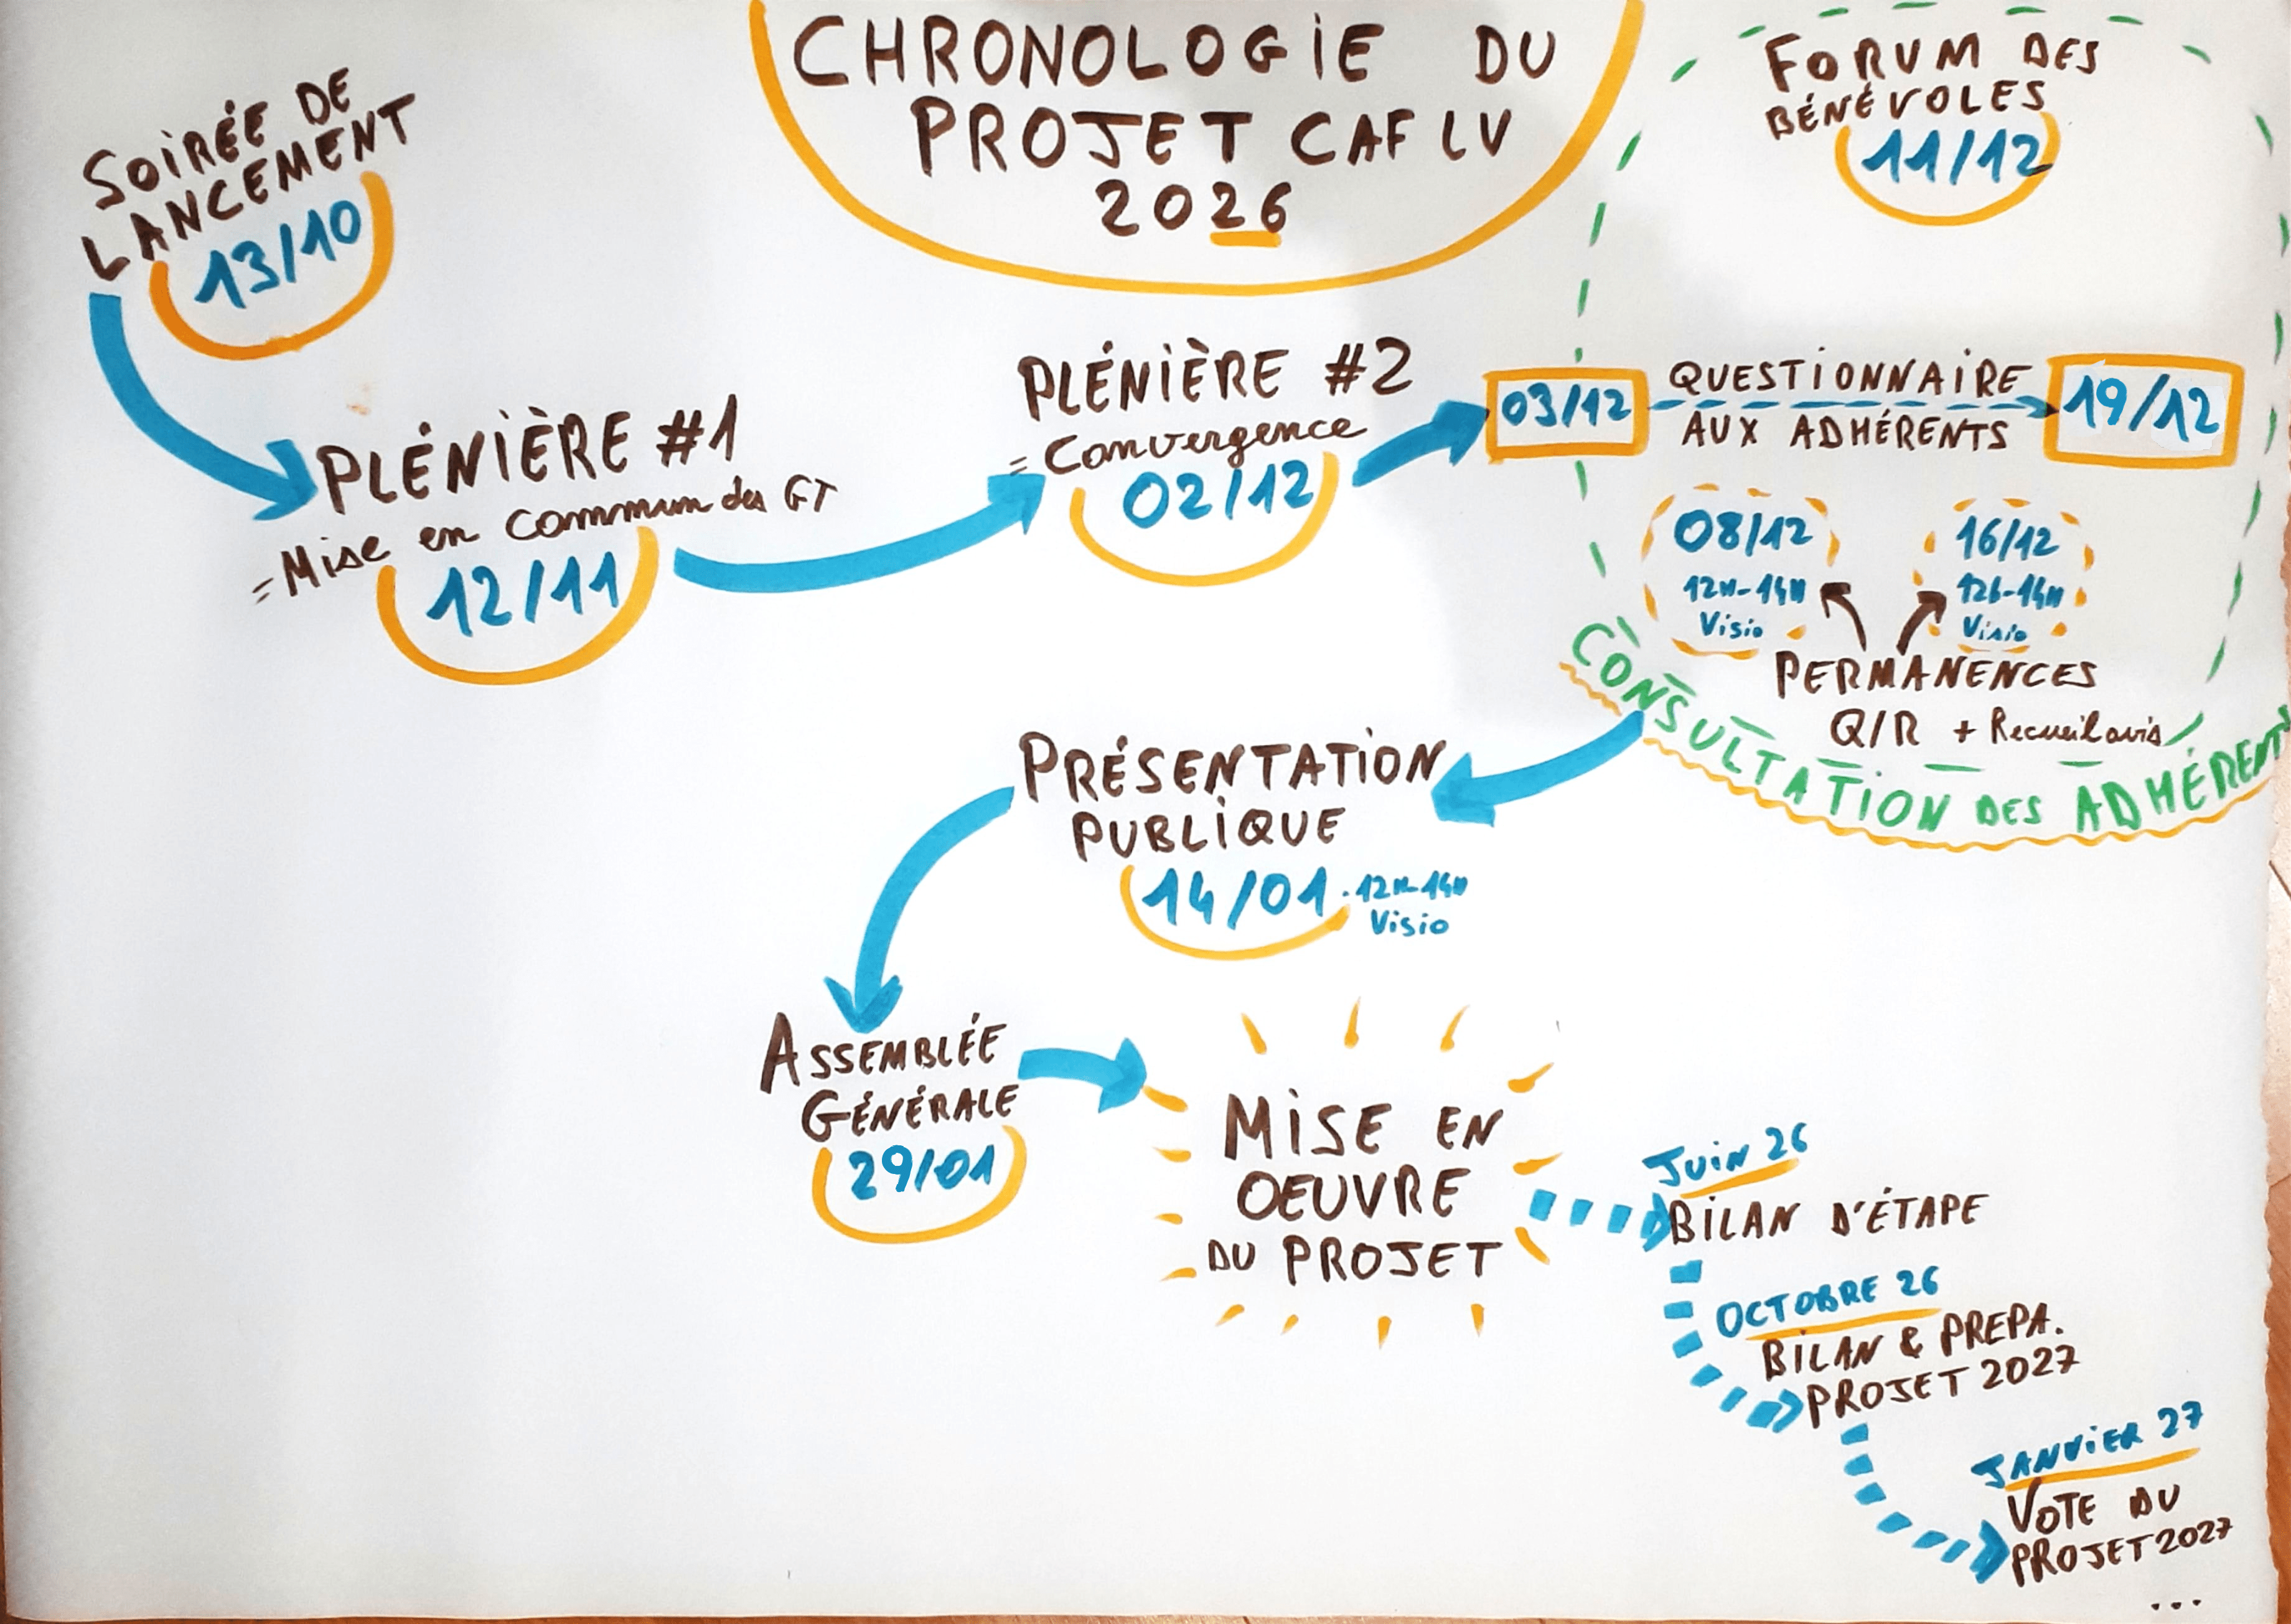 CHRONOLOGIE DU
PROJET CAF LV
2026
SOIRÉE DE
LANCEMENT
13/10
PLÉNIÈRE #1
= Mise en commun des GT
12/11
PLÉNIÈRE #2
= Convergence
02/12
FORUM DES
BÉNÉVOLES
11/12
03/12
QUESTIONNAIRE
AUX ADHÉRENTS
19/12
08/12
12H-14H
Visio
16/12
12h-14H
Visio
PERMANENCES
Q/R + Recueil avis
CONSULTATION DES ADHÉRENTS
PRÉSENTATION
PUBLIQUE
14/01 . 12H-14H
Visio
ASSEMBLÉE
GÉNÉRALE
29/01
MISE EN
OEUVRE
DU PROJET
JUIN 26
BILAN D'ÉTAPE
OCTOBRE 26
BILAN & PREPA.
PROJET 2027
JANVIER 27
VOTE DU
PROJET 2027
...